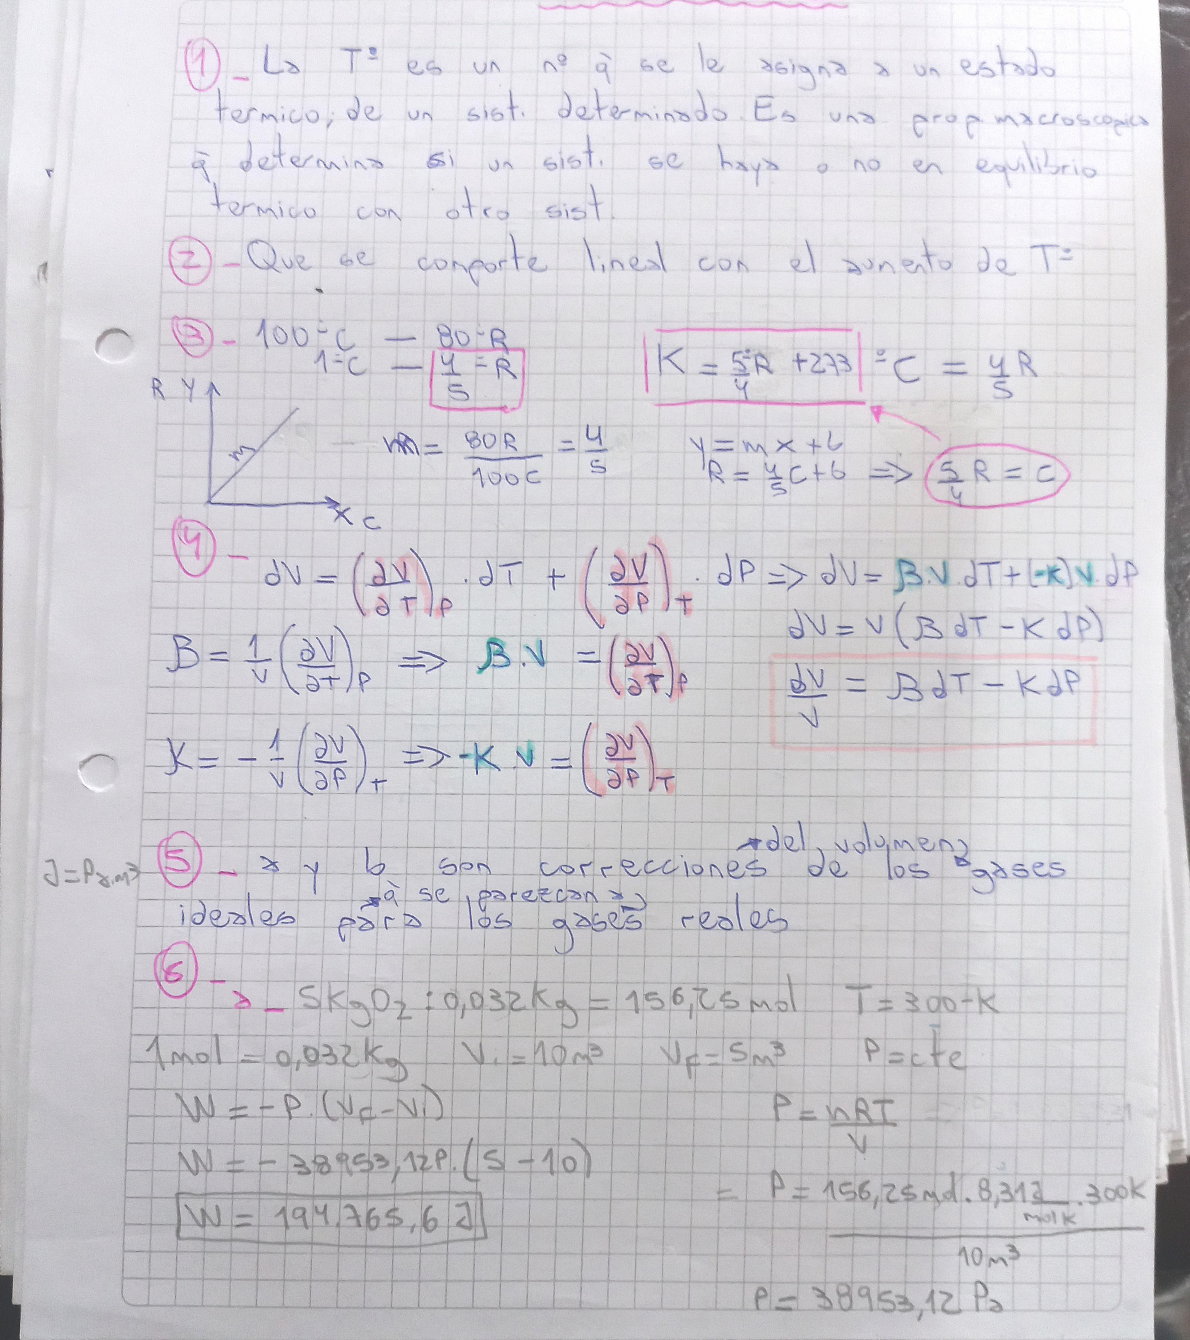 ① - La Tº es un nº q̇ se le asigna a un estado
termico, de un sist. determinado. Es una prop. macroscopica
q̄ determina si un sist. se haya o no en equilibrio
termico con otro sist.
② - Que se comporte lineal con el aumento de Tº
③ - 100ºC — 80ºR
1ºC — 4/5 ºR
K = 5/4 ºR + 273 ºC = 4/5 R
R Y
m
X C
m = 80R/100C = 4/5
y = mx + b
R = 4/5 C + b => 5/4 R = C
④ - dV = (∂V/∂T)P . dT + (∂V/∂P)T . dP => dV = B.V.dT + (-K)V.dP
dV = V(B dT - K dP)
B = 1/V (∂V/∂T)P => B.V = (∂V/∂T)P
dV/V = B dT - K dP
K = -1/V (∂V/∂P)T => -K.V = (∂V/∂P)T
del volumen
J = Pa.m³
⑤ - a y b son correcciones de los gases
q̇ se parezcan a
ideales para los gases reales
⑥ - a - 5Kg O2 : 0,032Kg = 156,25 mol T = 300ºK
1 mol = 0,032Kg Vi = 10m³ Vf = 5m³ P = cte
W = -P.(Vf - Vi) P = nRT/V
W = -38953,12P.(5 - 10)
= P = 156,25mol . 8,31 J/mol K . 300K / 10m³
W = 194.765,6 J
P = 38953,12 Pa